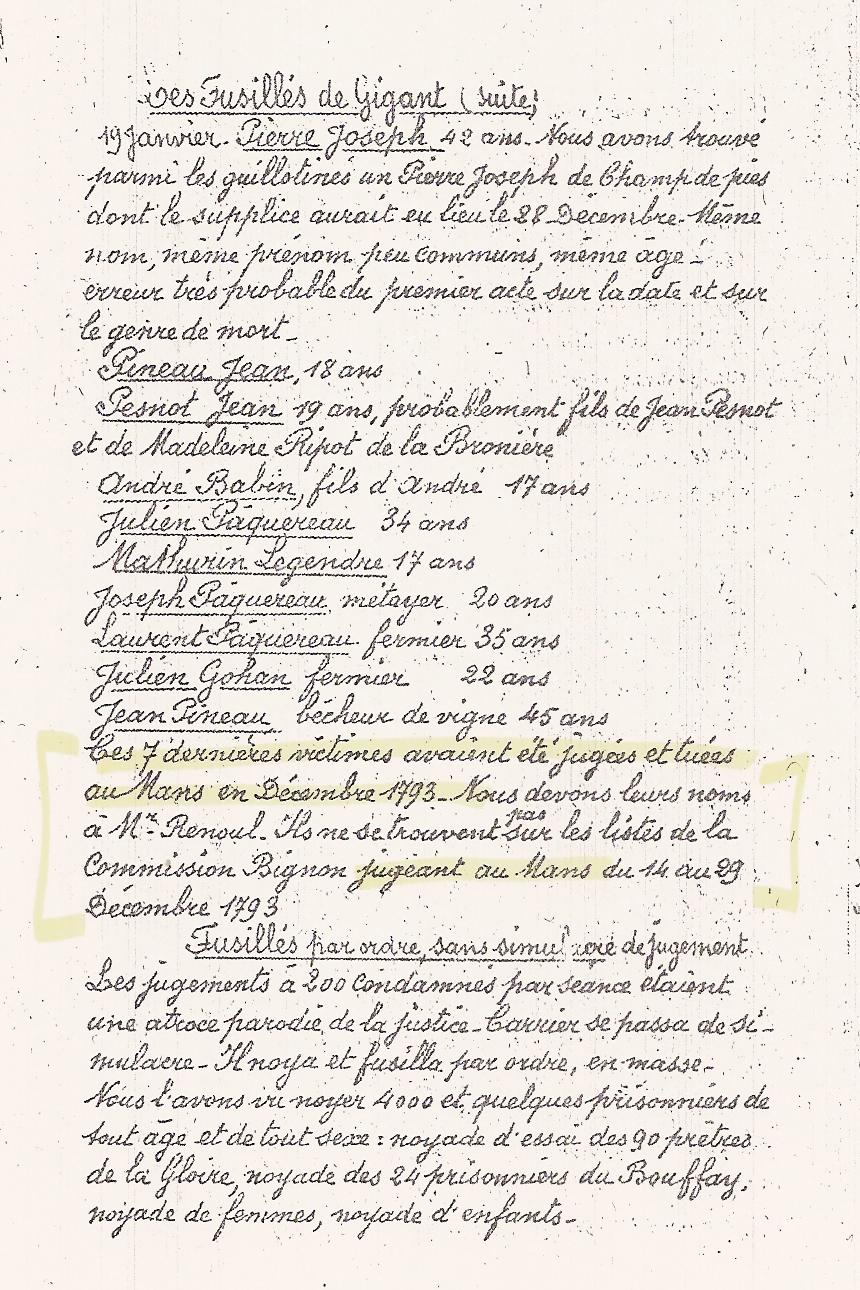 Les Fusillés de Gigant (suite)
19 Janvier. Pierre Joseph 42 ans. Nous avons trouvé
parmi les guillotinés un Pierre Joseph de Champ de pies
dont le supplice aurait eu lieu le 28 Décembre. Même
nom, même prénom peu communs, même âge :
erreur très probable du premier acte sur la date et sur
le genre de mort_
Pineau Jean, 18 ans
Pesnot Jean 19 ans, probablement fils de Jean Pesnot
et de Madeleine Ripot de la Bronière
André Babin, fils d'André 17 ans
Julien Pâquereau 34 ans
Mathurin Legendre 17 ans
Joseph Pâquereau métayer 20 ans
Laurent Pâquereau fermier 35 ans
Julien Gohan fermier 22 ans
Jean Pineau bêcheur de vigne 45 ans
Ces 7 dernières victimes avaient été jugées et tuées
au Mans en Décembre 1793_ Nous devons leurs noms
à Mr. Renoul. Ils ne se trouvent pas sur les listes de la
Commission Bignon jugeant au Mans du 14 au 29
Décembre 1793
Fusillés par ordre, sans simulacre de jugement
Les jugements à 200 condamnés par séance étaient
une atroce parodie de la justice_ Carrier se passa de si-
mulacre_ Il noya et fusilla par ordre, en masse_
Nous l'avons vu noyer 4000 et quelques prisonniers de
tout âge et de tout sexe : noyade d'essai des 90 prêtres
de la Gloire, noyade des 24 prisonniers du Bouffay,
noyade de femmes, noyade d'enfants_